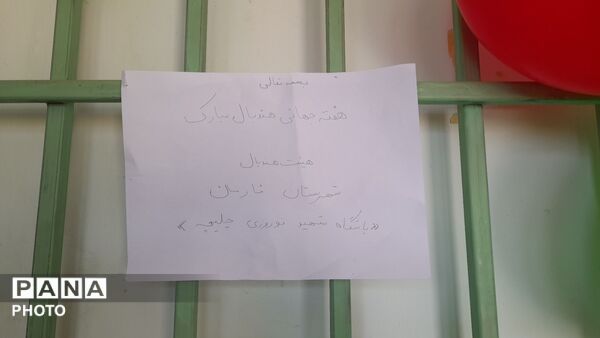 بسمه تعالی
هفته جهانی هندبال مبارک
هیئت هندبال
شهرستان فارسان
«باشگاه شهید نوروزی چلیچه»
PANA
PHOTO